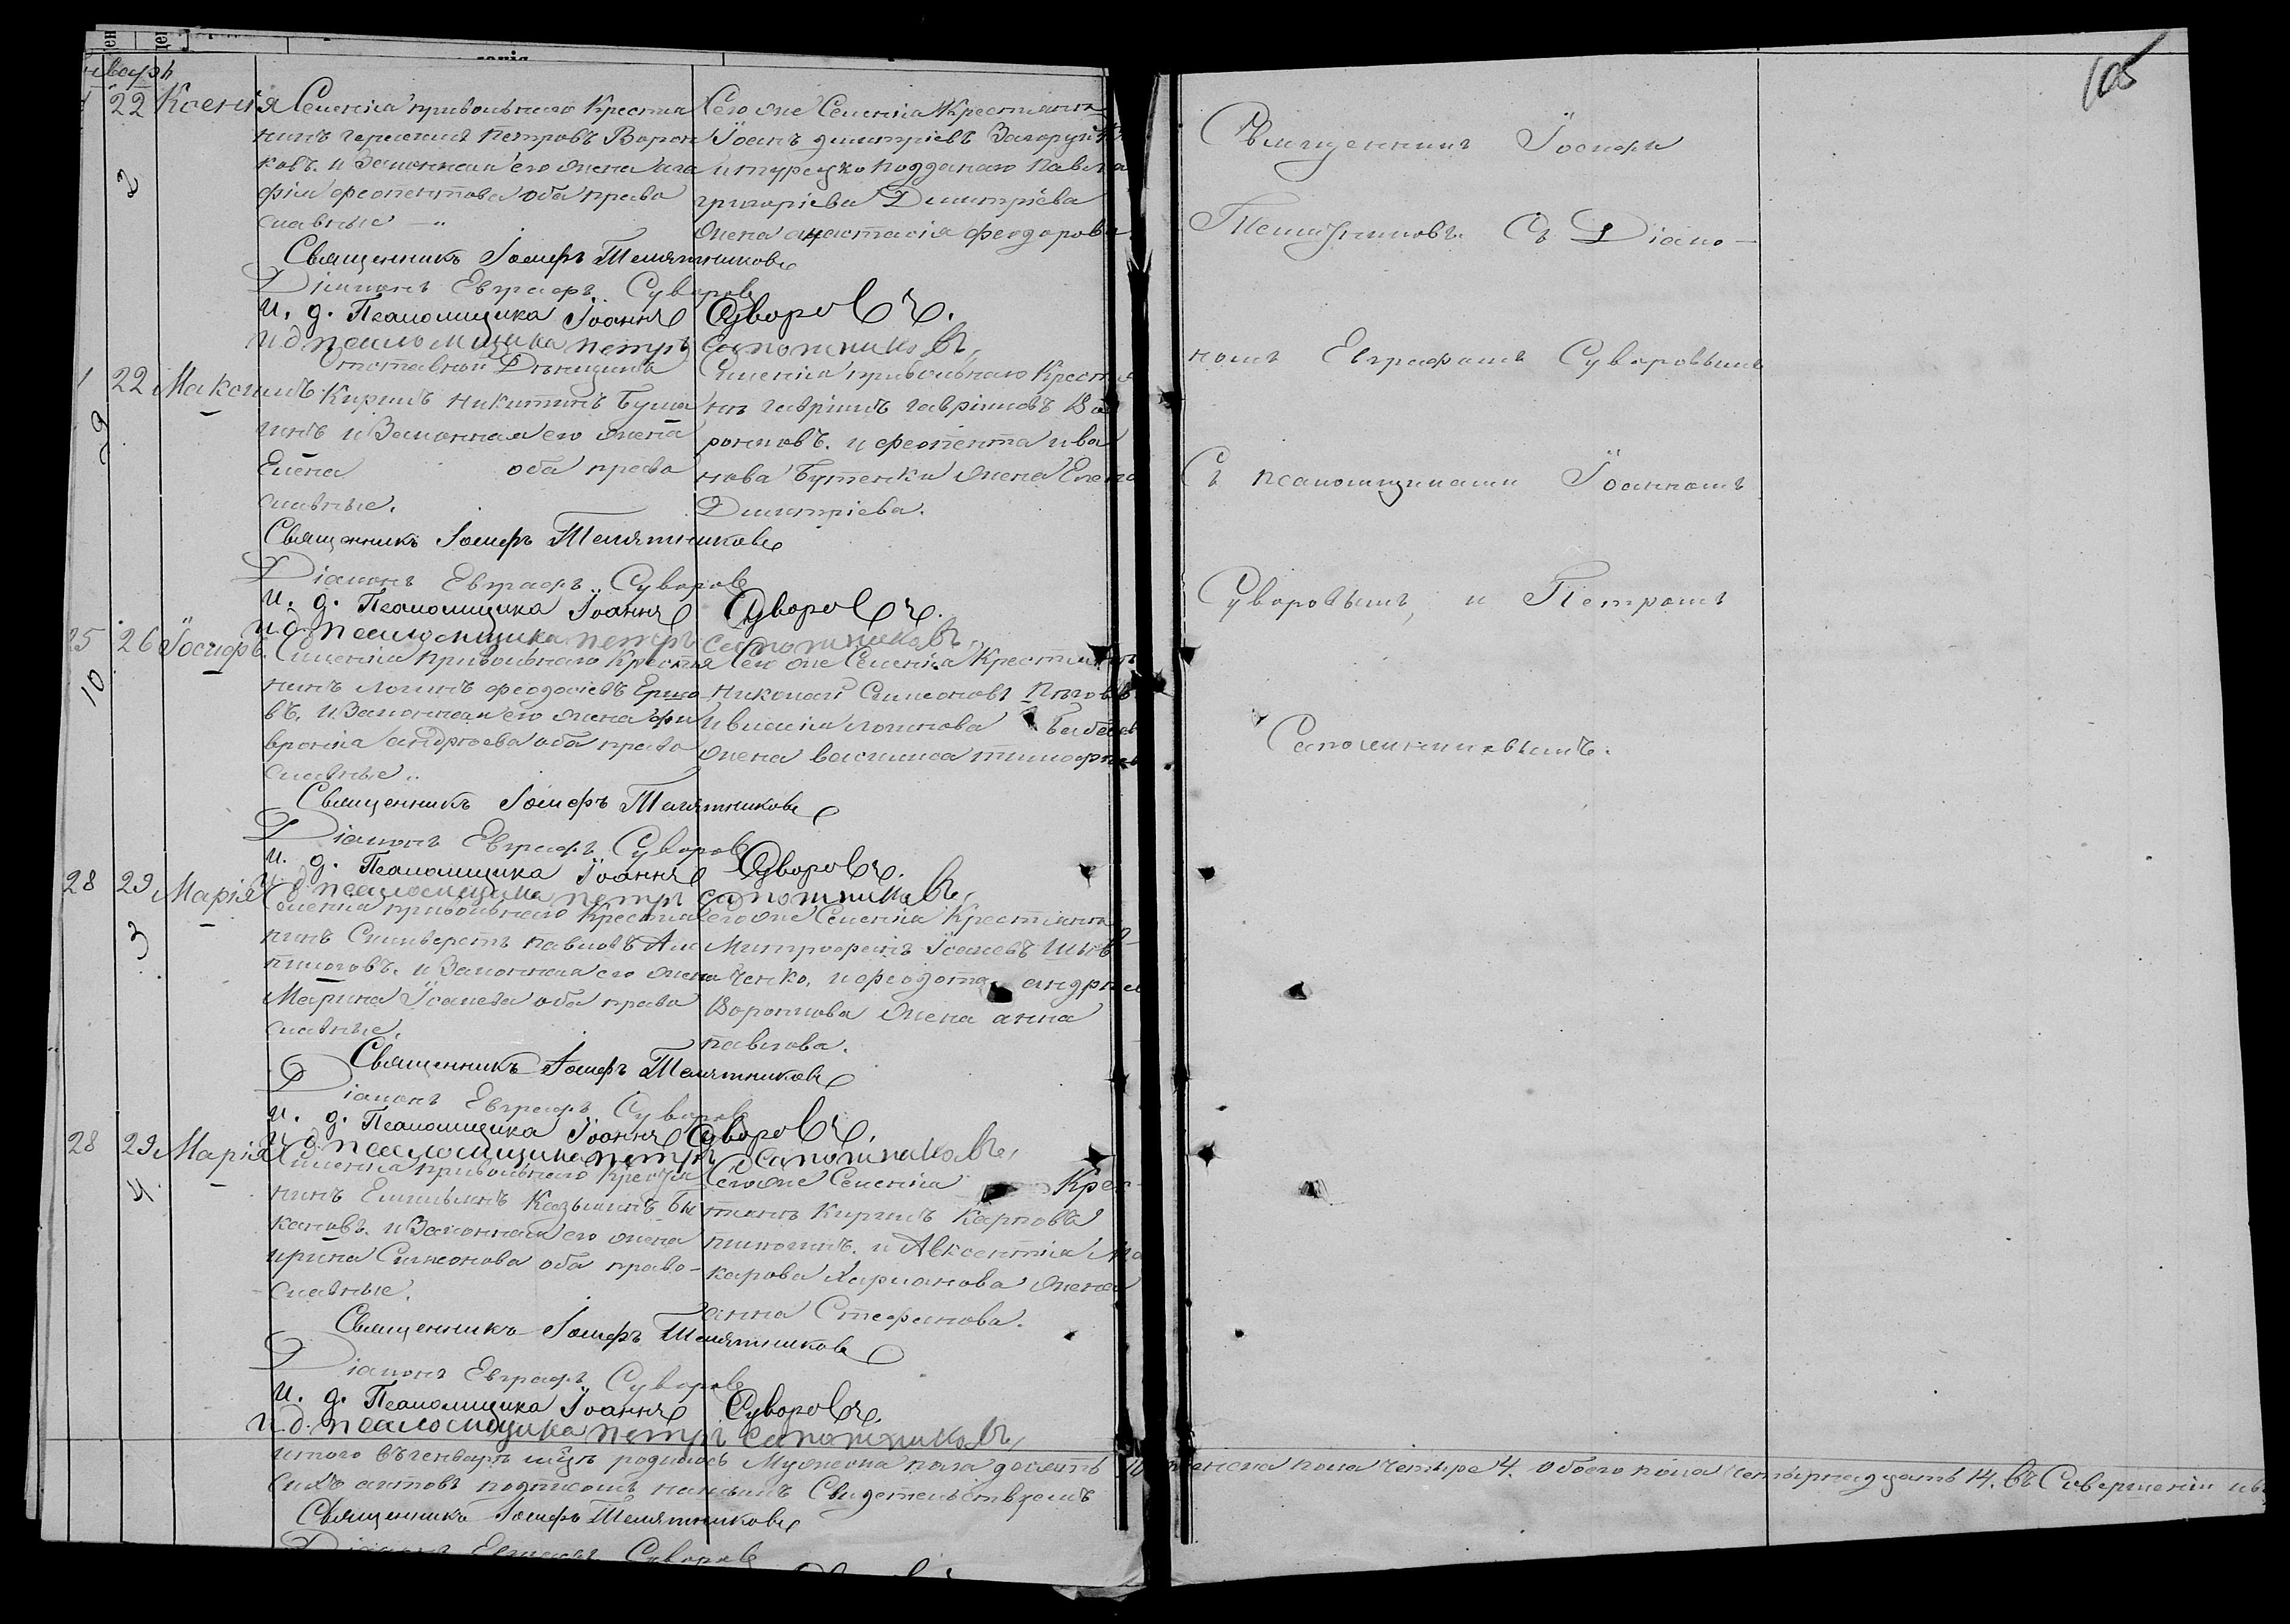 22 Ксенія
Селенія привольнаго Крестья
нинъ Герасимъ Петровъ Ворон
ковъ. и Законная его жена Ага
фія Феопентова оба право
славные
Сего же Селенія Крестьянинъ
Іоанъ Димитріевъ Загоруйко
и турецко подданаго Павла
григоріева Димитріева
жена анастасія феодорова
2
Священникъ Іосифъ Телятниковъ
Діаконъ Евграфъ Суворовъ
И. д. Псаломщика Іоаннъ Суворовъ.
И д псаломщика петръ Сапожниковъ
1 22 Максимъ
9
Отставной Деньщикъ
Кирилъ никитинъ Буша
и Законная его жена
Елена оба право
славные.
Селенія привольнаго Крестья
гавріилъ гавріиловъ Во
ронковъ. и феопента ива
нова Бутенки жена Елена
Димитріева.
Священникъ Іосифъ Телятниковъ
Діаконъ Евграфъ Суворовъ
И. д. Псаломщика Іоаннъ Суворовъ.
И. д. псаломщика петръ сапожниковъ
25 26 Іосифъ
10
Селенія привольнаго Крестья
нинъ логинъ феодосіевъ
въ. и Законная его жена фе
вронія андреева оба право
славные.
Сего же Селенія Крестьянинъ
николай Симеоновъ
логинова
жена василиса тимофеева
Священникъ Іосифъ Телятниковъ
Діаконъ Евграфъ Суворовъ
И. д. Псаломщика Іоаннъ Суворовъ.
И д псаломщика петръ сапожниковъ
28 29 Марія
3
Селенія привольнаго Крестья
нинъ Сильверстъ павловъ
и Законная его жена
Марина Іоанова оба право
славные.
Сего же Селенія Крестьянинъ
Митрофанъ Іоановъ Шев
ченко, и феодота андреева
Воронкова жена анна
павлова.
Священникъ Іосифъ Телятниковъ
Діаконъ Евграфъ Суворовъ
И. д. Псаломщика Іоаннъ Суворовъ.
И д. псаломщика петръ сапожниковъ
28 29 Марія
4.
Селенія привольнаго Крестья
нинъ Емильянъ Казьминъ Бы
кановъ. и Законная его жена
ирина Симеонова оба право-
славные.
Сего же Селенія Крес-
тьянинъ Кирилъ Карповъ
и Авксентія Ма
карова Харланова жена
анна Стефанова.
Священникъ Іосифъ Телятниковъ
Діаконъ Евграфъ Суворовъ
И. д. Псаломщика Іоаннъ Суворовъ.
И д. псаломщика петръ Сапожниковъ
итого въ генваре родилось Мужеска пола десять женска пола четыре 4. обоего пола четырнадцать 14. въ Совершеніи
Сихъ актовъ подписомъ нашимъ Свидетельствуемъ
Священникъ Іосифъ Телятниковъ
Діаконъ Евграфъ Суворовъ
105
Священникъ Іосифъ
Телятниковъ Съ Діако-
номъ Евграфомъ Суворовымъ
Съ псаломщиками Іоанномъ
Суворовымъ, и Петромъ
Сапожниковымъ.